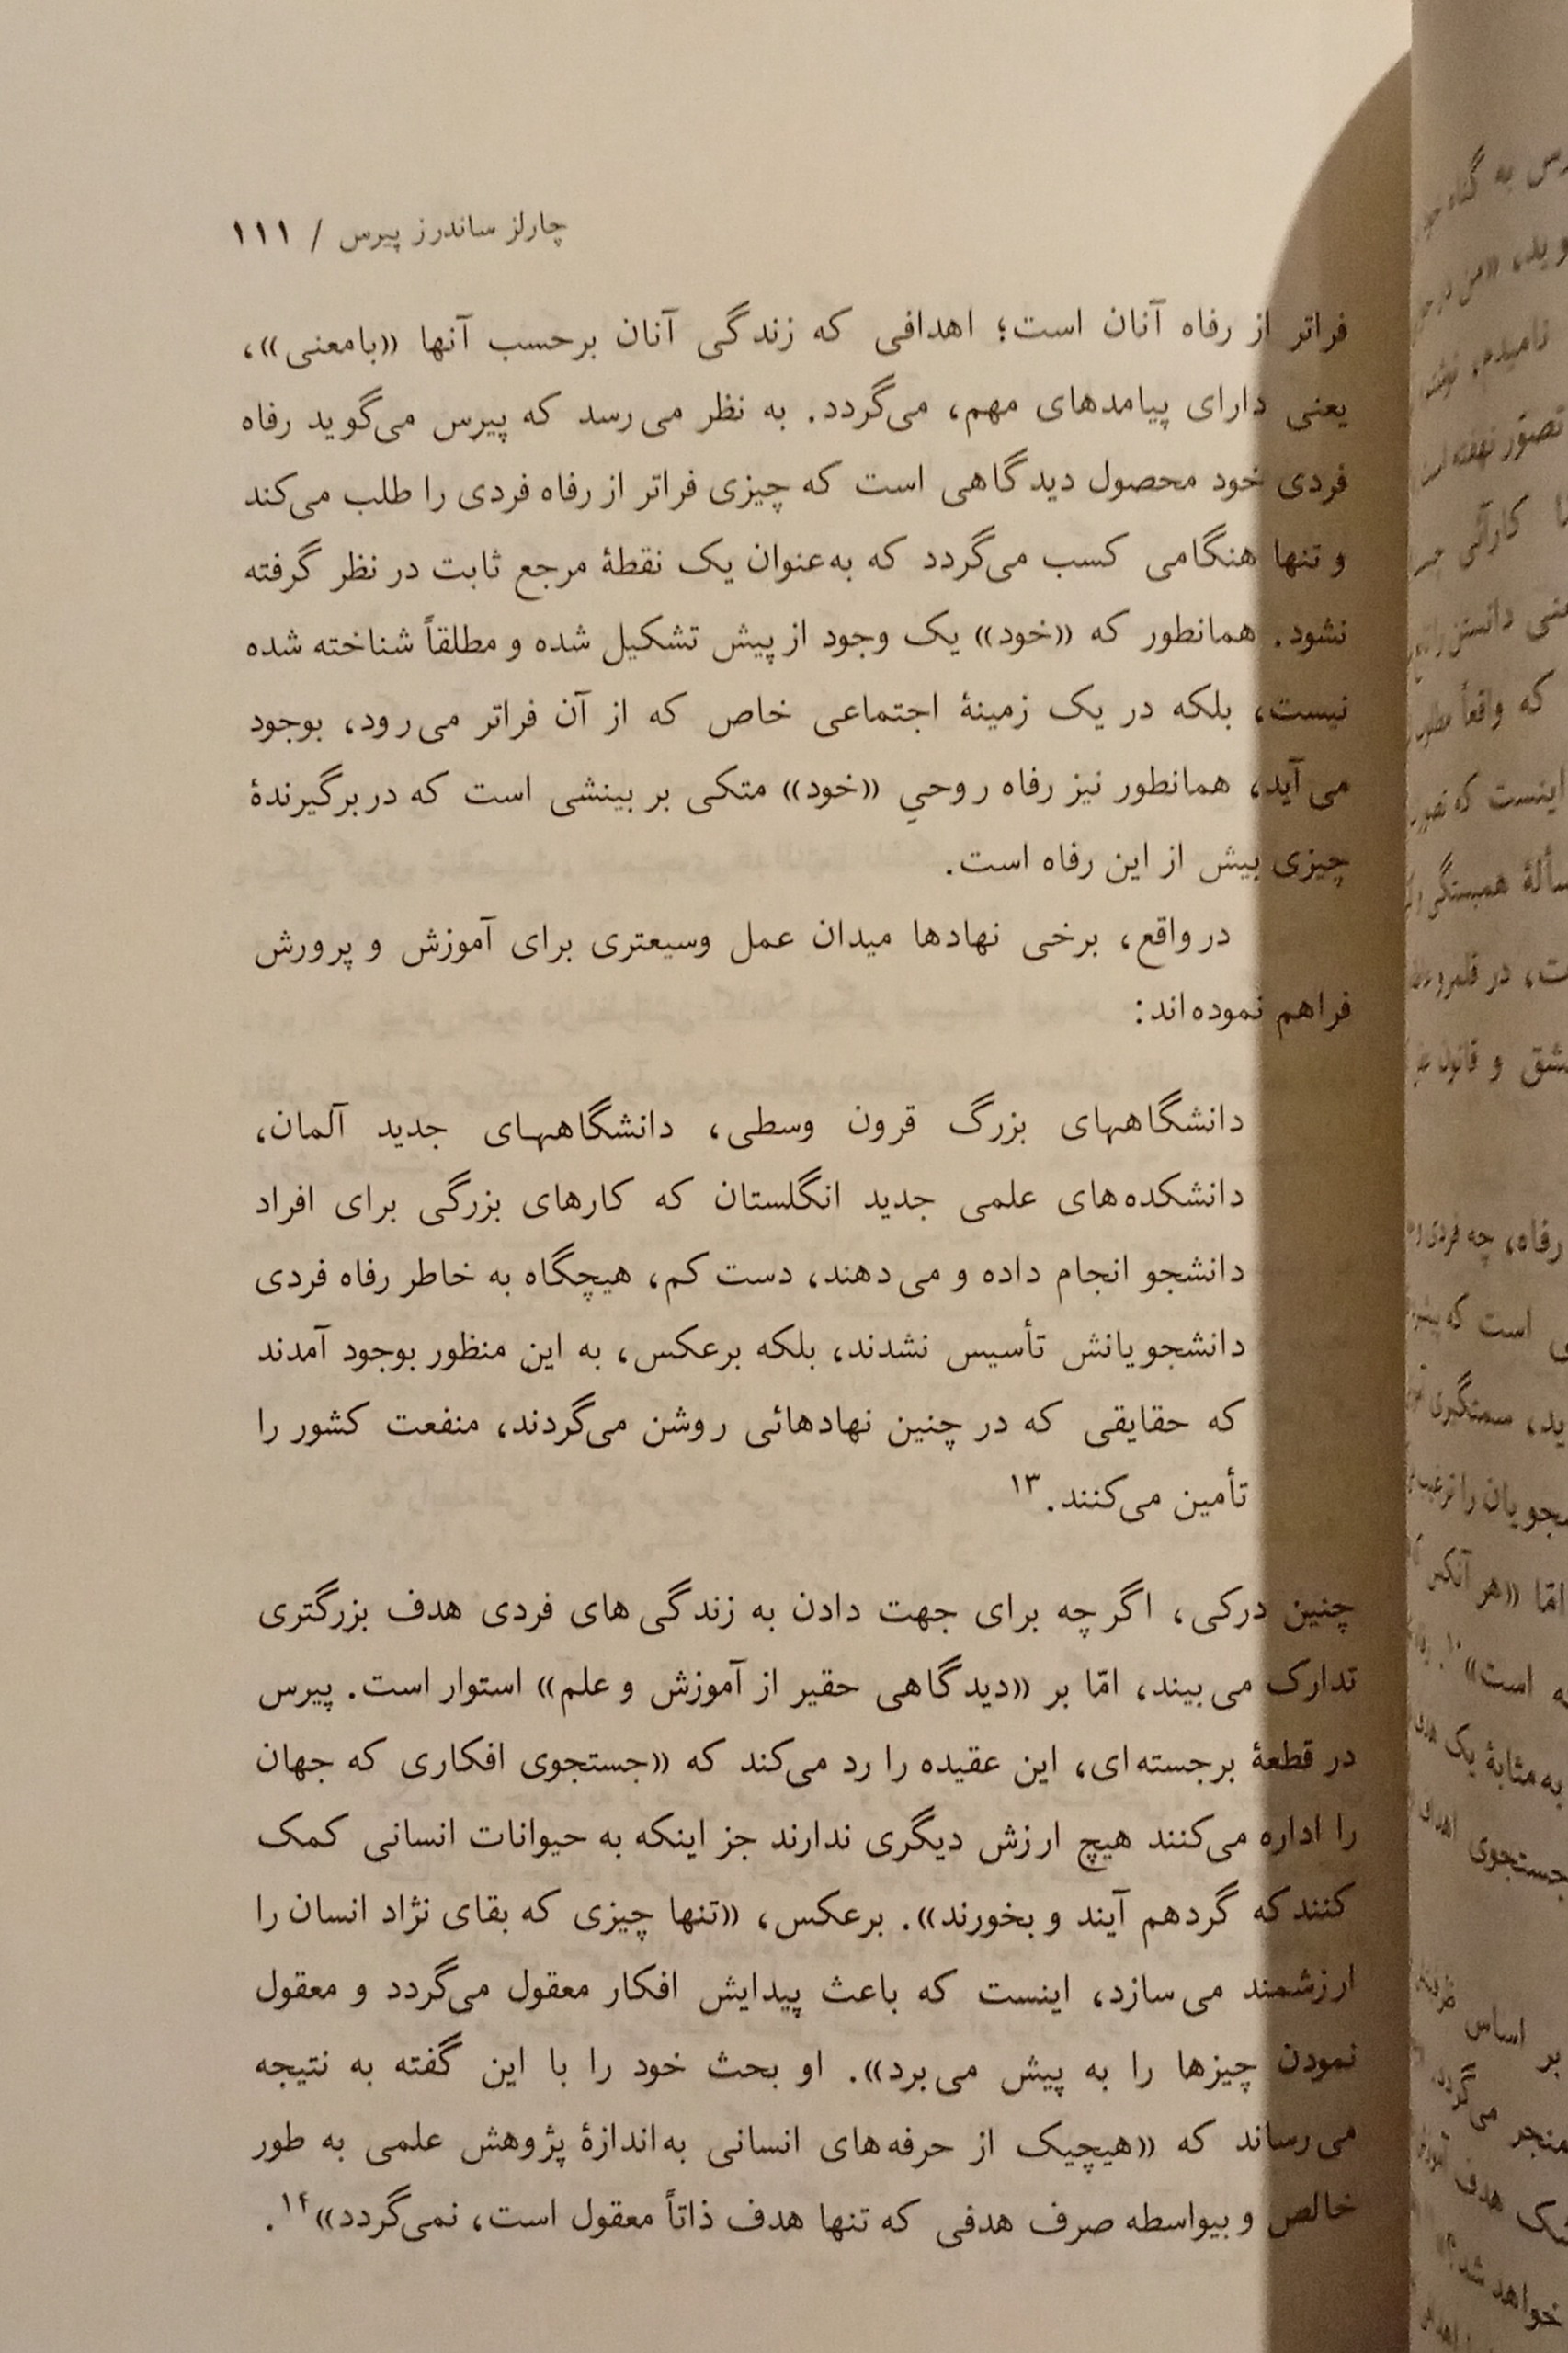 چارلز ساندرز پیرس / ۱۱۱
فراتر از رفاه آنان است؛ اهدافی که زندگی آنان برحسب آنها «بامعنی»،
یعنی دارای پیامدهای مهم، می‌گردد. به نظر می‌رسد که پیرس می‌گوید رفاه
فردی خود محصول دیدگاهی است که چیزی فراتر از رفاه فردی را طلب می‌کند
و تنها هنگامی کسب می‌گردد که به‌عنوان یک نقطهٔ مرجع ثابت در نظر گرفته
نشود. همانطور که «خود» یک وجود از پیش تشکیل شده و مطلقاً شناخته شده
نیست، بلکه در یک زمینهٔ اجتماعی خاص که از آن فراتر می‌رود، بوجود
می‌آید، همانطور نیز رفاه روحیِ «خود» متکی بر بینشی است که دربرگیرندهٔ
چیزی بیش از این رفاه است.
در واقع، برخی نهادها میدان عمل وسیعتری برای آموزش و پرورش
فراهم نموده‌اند:
دانشگاههای بزرگ قرون وسطی، دانشگاههای جدید آلمان،
دانشکده‌های علمی جدید انگلستان که کارهای بزرگی برای افراد
دانشجو انجام داده و می‌دهند، دست کم، هیچگاه به خاطر رفاه فردی
دانشجویانش تأسیس نشدند، بلکه برعکس، به این منظور بوجود آمدند
که حقایقی که در چنین نهادهائی روشن می‌گردند، منفعت کشور را
تأمین می‌کنند.۱۳
چنین درکی، اگر چه برای جهت دادن به زندگی‌های فردی هدف بزرگتری
تدارک می‌بیند، امّا بر «دیدگاهی حقیر از آموزش و علم» استوار است. پیرس
در قطعهٔ برجسته‌ای، این عقیده را رد می‌کند که «جستجوی افکاری که جهان
را اداره می‌کنند هیچ ارزش دیگری ندارند جز اینکه به حیوانات انسانی کمک
کنند که گردهم آیند و بخورند». برعکس، «تنها چیزی که بقای نژاد انسان را
ارزشمند می‌سازد، اینست که باعث پیدایش افکار معقول می‌گردد و معقول
نمودن چیزها را به پیش می‌برد». او بحث خود را با این گفته به نتیجه
می‌رساند که «هیچیک از حرفه‌های انسانی به‌اندازهٔ پژوهش علمی به طور
خالص و بیواسطه صرف هدفی که تنها هدف ذاتاً معقول است، نمی‌گردد»۱۴.